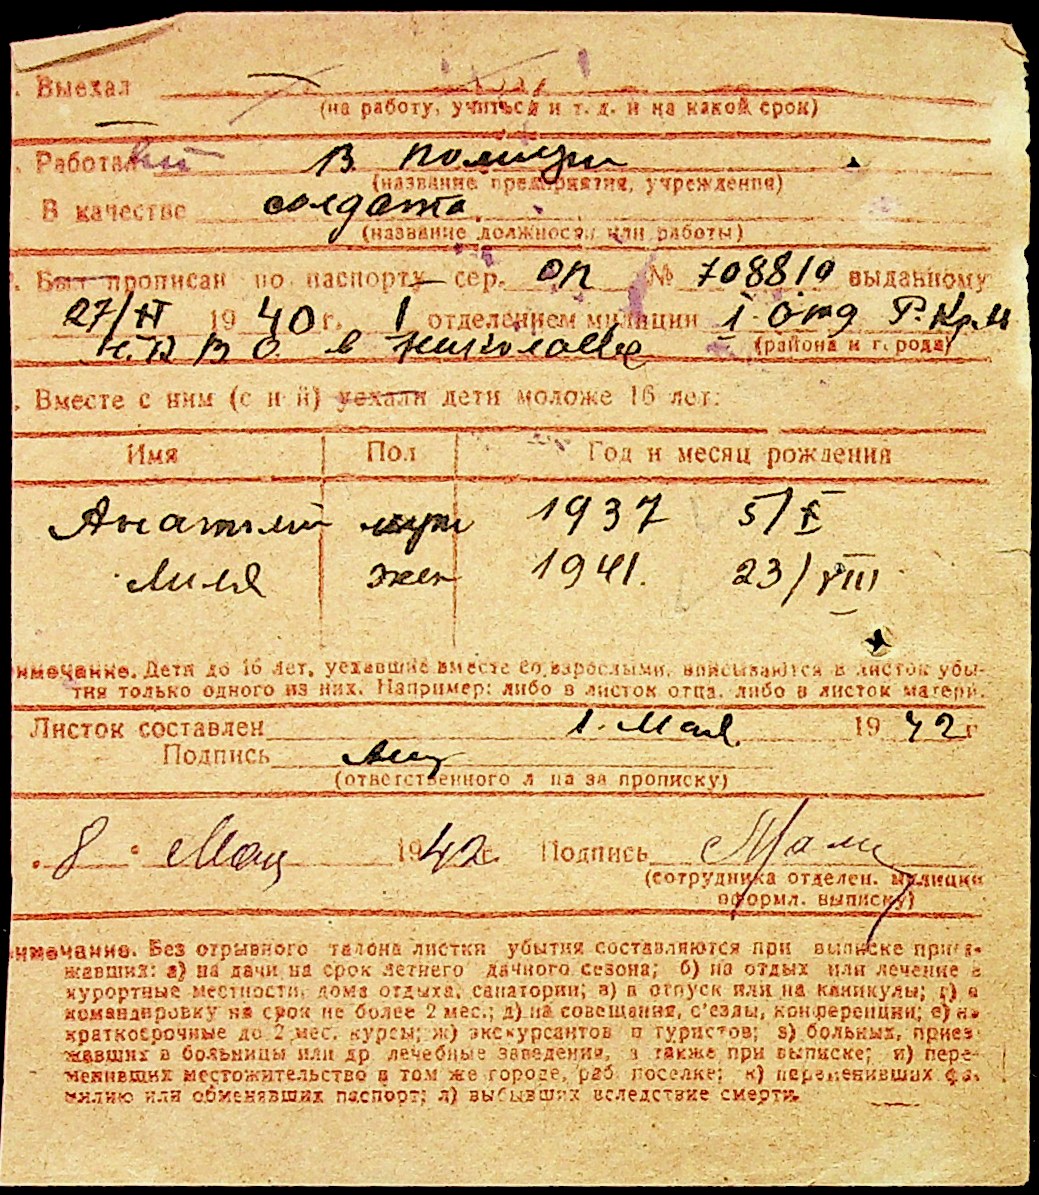 . Выехал
(на работу, учиться и т. д. и на какой срок)
. Работал В полиции
(название предприятия, учреждения)
В качестве солдата
(название должности или работы)
. Был прописан по паспорту сер. ОП № 708810 выданному
27/II 1940 г. 1 отделением милиции 1 Отд Р.Кр.М
Н.К В О. в Николаеве (района и города)
. Вместе с ним (с ней) уехали дети моложе 16 лет:
Имя Пол Год и месяц рождения
Анатолий муж 1937 5/X
Лиля жен 1941. 23/VIII
имечание. Дети до 16 лет, уехавшие вместе со взрослыми, вписываются в листок убы-
тия только одного из них. Например: либо в листок отца, либо в листок матери.
Листок составлен 1. Мая 1942 г
Подпись
(ответственного лица за прописку)
. 8 " Мая 1942 г. Подпись
(сотрудника отделен. милиции
оформл. выписку)
имечание. Без отрывного талона листки убытия составляются при выписке приез-
жавших: а) на дачи на срок летнего дачного сезона; б) на отдых или лечение в
курортные местности, дома отдыха, санатории; в) в отпуск или на каникулы; г) в
командировку на срок не более 2 мес.; д) на совещания, с'езды, конференции; е) на
краткосрочные до 2 мес. курсы; ж) экскурсантов и туристов; з) больных, приез-
жавших в больницы или др лечебные заведения, а также при выписке; и) пере-
менивших местожительство в том же городе, раб. поселке; к) переменивших фа-
милию или обменявших паспорт; л) выбывших вследствие смерти.